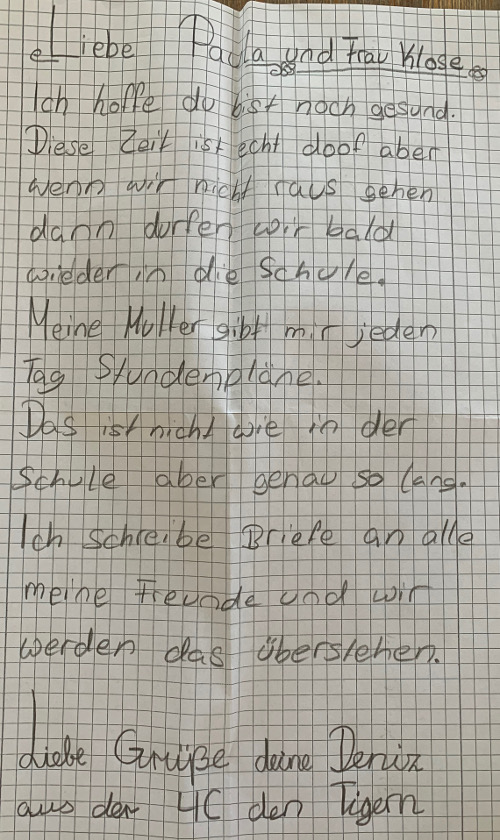 Liebe Paula und Frau Klose
Ich hoffe du bist noch gesund.
Diese Zeit ist echt doof aber
wenn wir nicht raus gehen
dann durfen wir bald
wiedder in die Schule.
Meine Mutter gibt mir jeden
Tag Stundenpläne.
Das ist nicht wie in der
Schule aber genau so lang.
Ich schreibe Briefe an alle
meine Freunde und wir
werden das überstehen.
Liebe Grüße deine Deniz
aus der 4C den Tigern